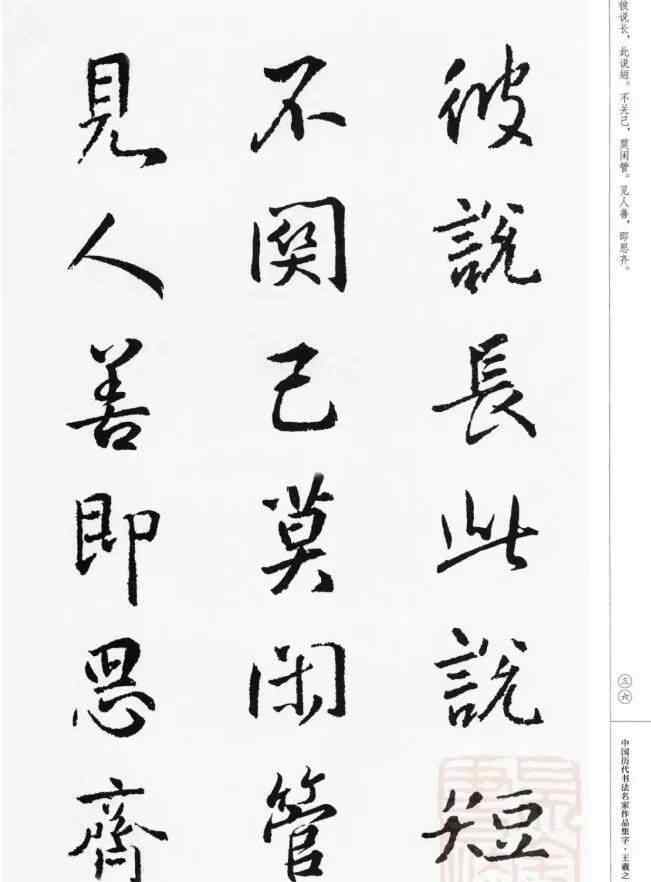 彼說長此說短
不關己莫閑管
見人善即思齊
彼说长，此说短。不关己，莫闲管。见人善，即思齐。
三六
中国历代书法名家作品集字·王羲之